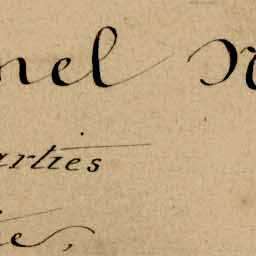 nel N
arties
ie,